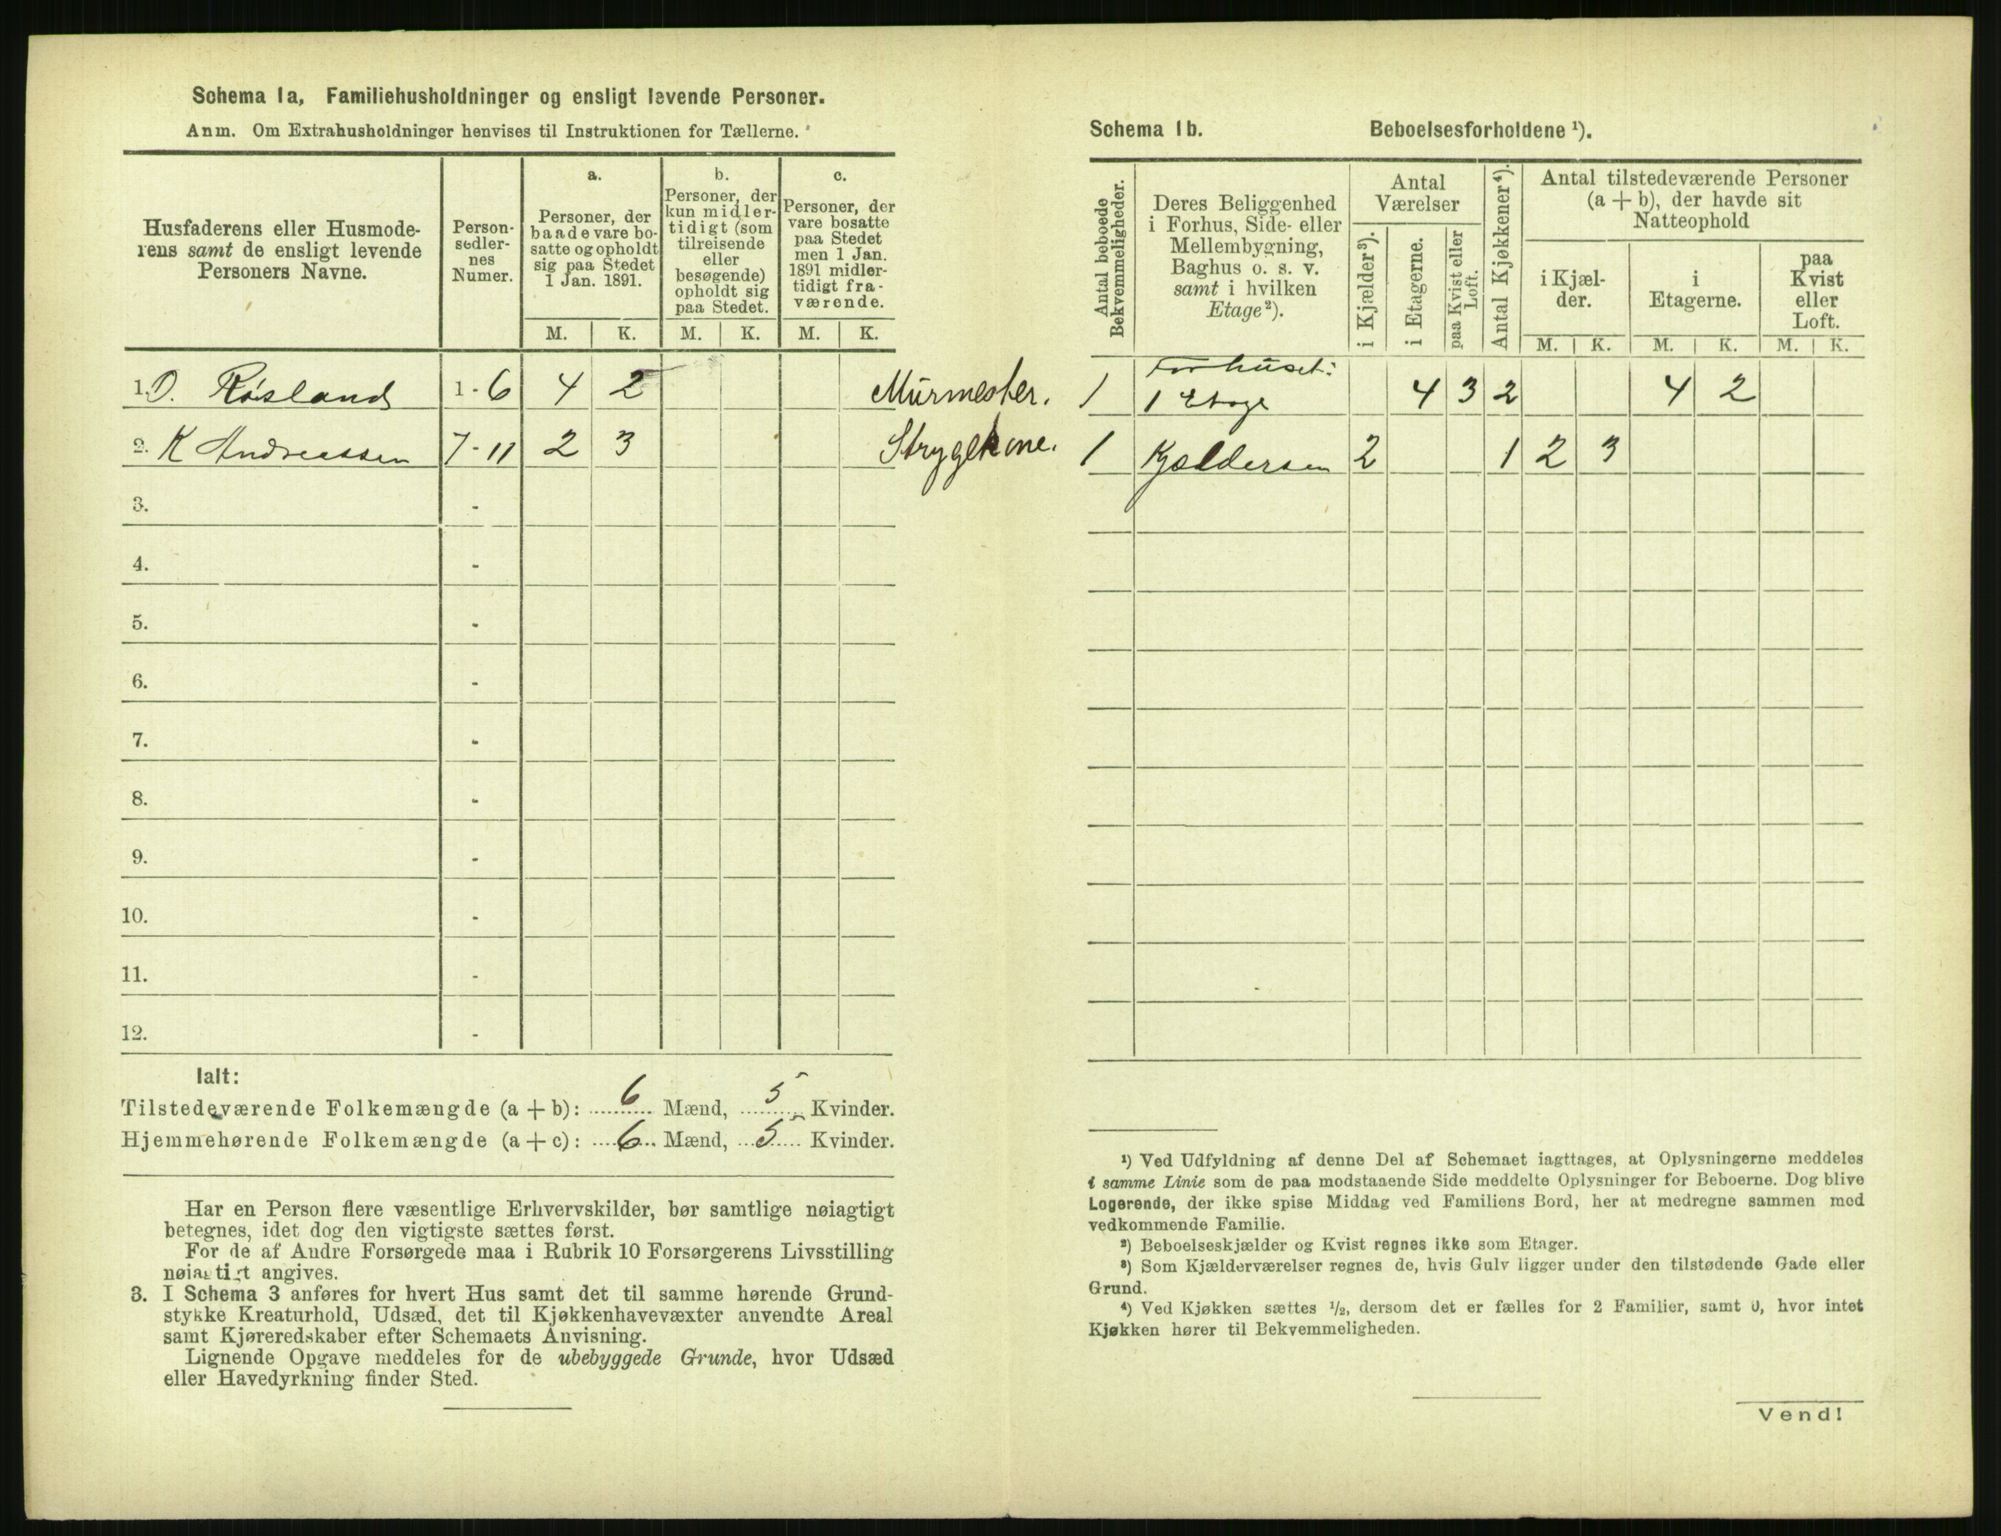 Schema 1a, Familiehusholdninger og ensligt levende Personer.
Anm. Om Extrahusholdninger henvises til Instruktionen for Tællerne.
Husfaderens eller Husmode-
rens samt de ensligt levende
Personers Navne.
Person-
sedler-
nes
Numer.
a.
Personer, der
baade vare bo-
satte og opholdt
sig paa Stedet
1 Jan. 1891.
b.
Personer, der
kun midler-
tidigt (som
tilreisende
eller
besøgende)
opholdt sig
paa Stedet.
c.
Personer, der
vare bosatte
paa Stedet
men 1 Jan.
1891 midler-
tidigt fra-
værende.
M. K. M. K. M. K.
1. O. Røsland 1-6 4 2 Murmester.
2. K Andreassen 7-11 2 3 Strygekone.
3. -
4. -
5. -
6. -
7. -
8. -
9. -
10. -
11. -
12. -
Ialt:
Tilstedeværende Folkemængde (a + b): 6 Mænd, 5 Kvinder.
Hjemmehørende Folkemængde (a + c): 6 Mænd, 5 Kvinder.
Har en Person flere væsentlige Erhvervskilder, bør samtlige nøiagtigt
betegnes, idet dog den vigtigste sættes først.
For de af Andre Forsørgede maa i Rubrik 10 Forsørgerens Livsstilling
nøiagtigt angives.
3. I Schema 3 anføres for hvert Hus samt det til samme hørende Grund-
stykke Kreaturhold, Udsæd, det til Kjøkkenhavevæxter anvendte Areal
samt Kjøreredskaber efter Schemaets Anvisning.
Lignende Opgave meddeles for de ubebyggede Grunde, hvor Udsæd
eller Havedyrkning finder Sted.
Schema 1b. Beboelsesforholdene ¹).
Antal beboede
Bekvemmeligheder.
Deres Beliggenhed
i Forhus, Side- eller
Mellembygning,
Baghus o. s. v.
samt i hvilken
Etage²).
Antal
Værelser
i Kjælder³).
i Etagerne.
paa Kvist eller
Loft.
Antal Kjøkkener⁴).
Antal tilstedeværende Personer
(a + b), der havde sit
Natteophold
i Kjæl-
der.
i
Etagerne.
paa
Kvist
eller
Loft.
M. K. M. K. M. K.
Forhuset:
1 1 Etage 4 3 2 4 2
1 Kjælderen 2 1 2 3
¹) Ved Udfyldning af denne Del af Schemaet iagttages, at Oplysningerne meddeles
i samme Linie som de paa modstaaende Side meddelte Oplysninger for Beboerne. Dog blive
Logerende, der ikke spise Middag ved Familiens Bord, her at medregne sammen med
vedkommende Familie.
²) Beboelseskjælder og Kvist regnes ikke som Etager.
³) Som Kjælderværelser regnes de, hvis Gulv ligger under den tilstødende Gade eller
Grund.
⁴) Ved Kjøkken sættes ½, dersom det er fælles for 2 Familier, samt 0, hvor intet
Kjøkken hører til Bekvemmeligheden.
Vend!